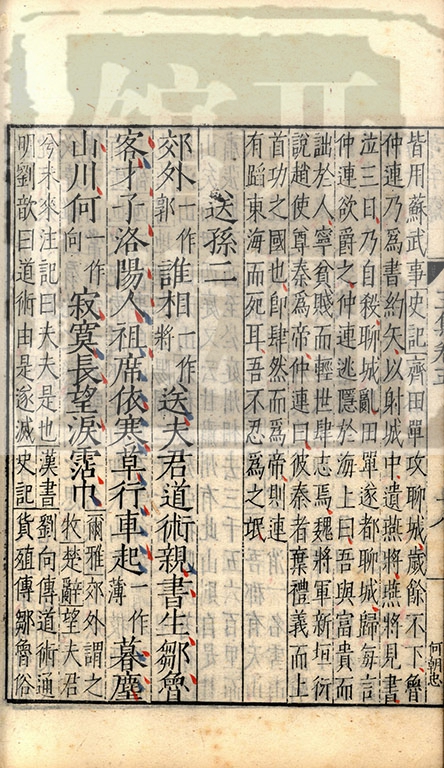 皆用蘇武事史記齊田單攻聊城歲餘不下魯
仲連乃爲書約矢以射城中遺燕將燕將見書
泣三日乃自殺聊城亂田單遂都聊城歸每言
仲連欲爵之仲連逃隱於海上曰吾與富貴而
詘於人寧貧賤而輕世肆志焉魏將軍新垣衍
說趙使尊秦爲帝仲連曰彼秦者棄禮義而上
首功之國也卽肆然而爲帝則連
有蹈東海而死耳吾不忍爲之氓
送孫二
郊外一作郭誰相一作將送夫君道術親書生鄒魯
客才子洛陽人祖席依寒草行車起一作薄暮塵
山川何一作向寂寞長望淚霑巾爾雅郊外謂之
牧楚辭望夫君
兮未來注記曰夫夫是也漢書劉向傳道術通
明劉歆曰道術由是遂滅史記貨殖傳鄒魯俗
何朝忠